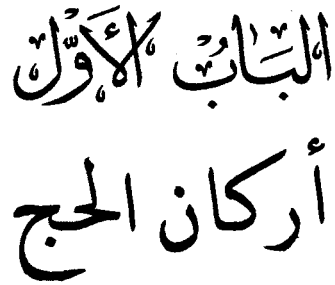 البَابُ الأَوَّل
أركان الحج